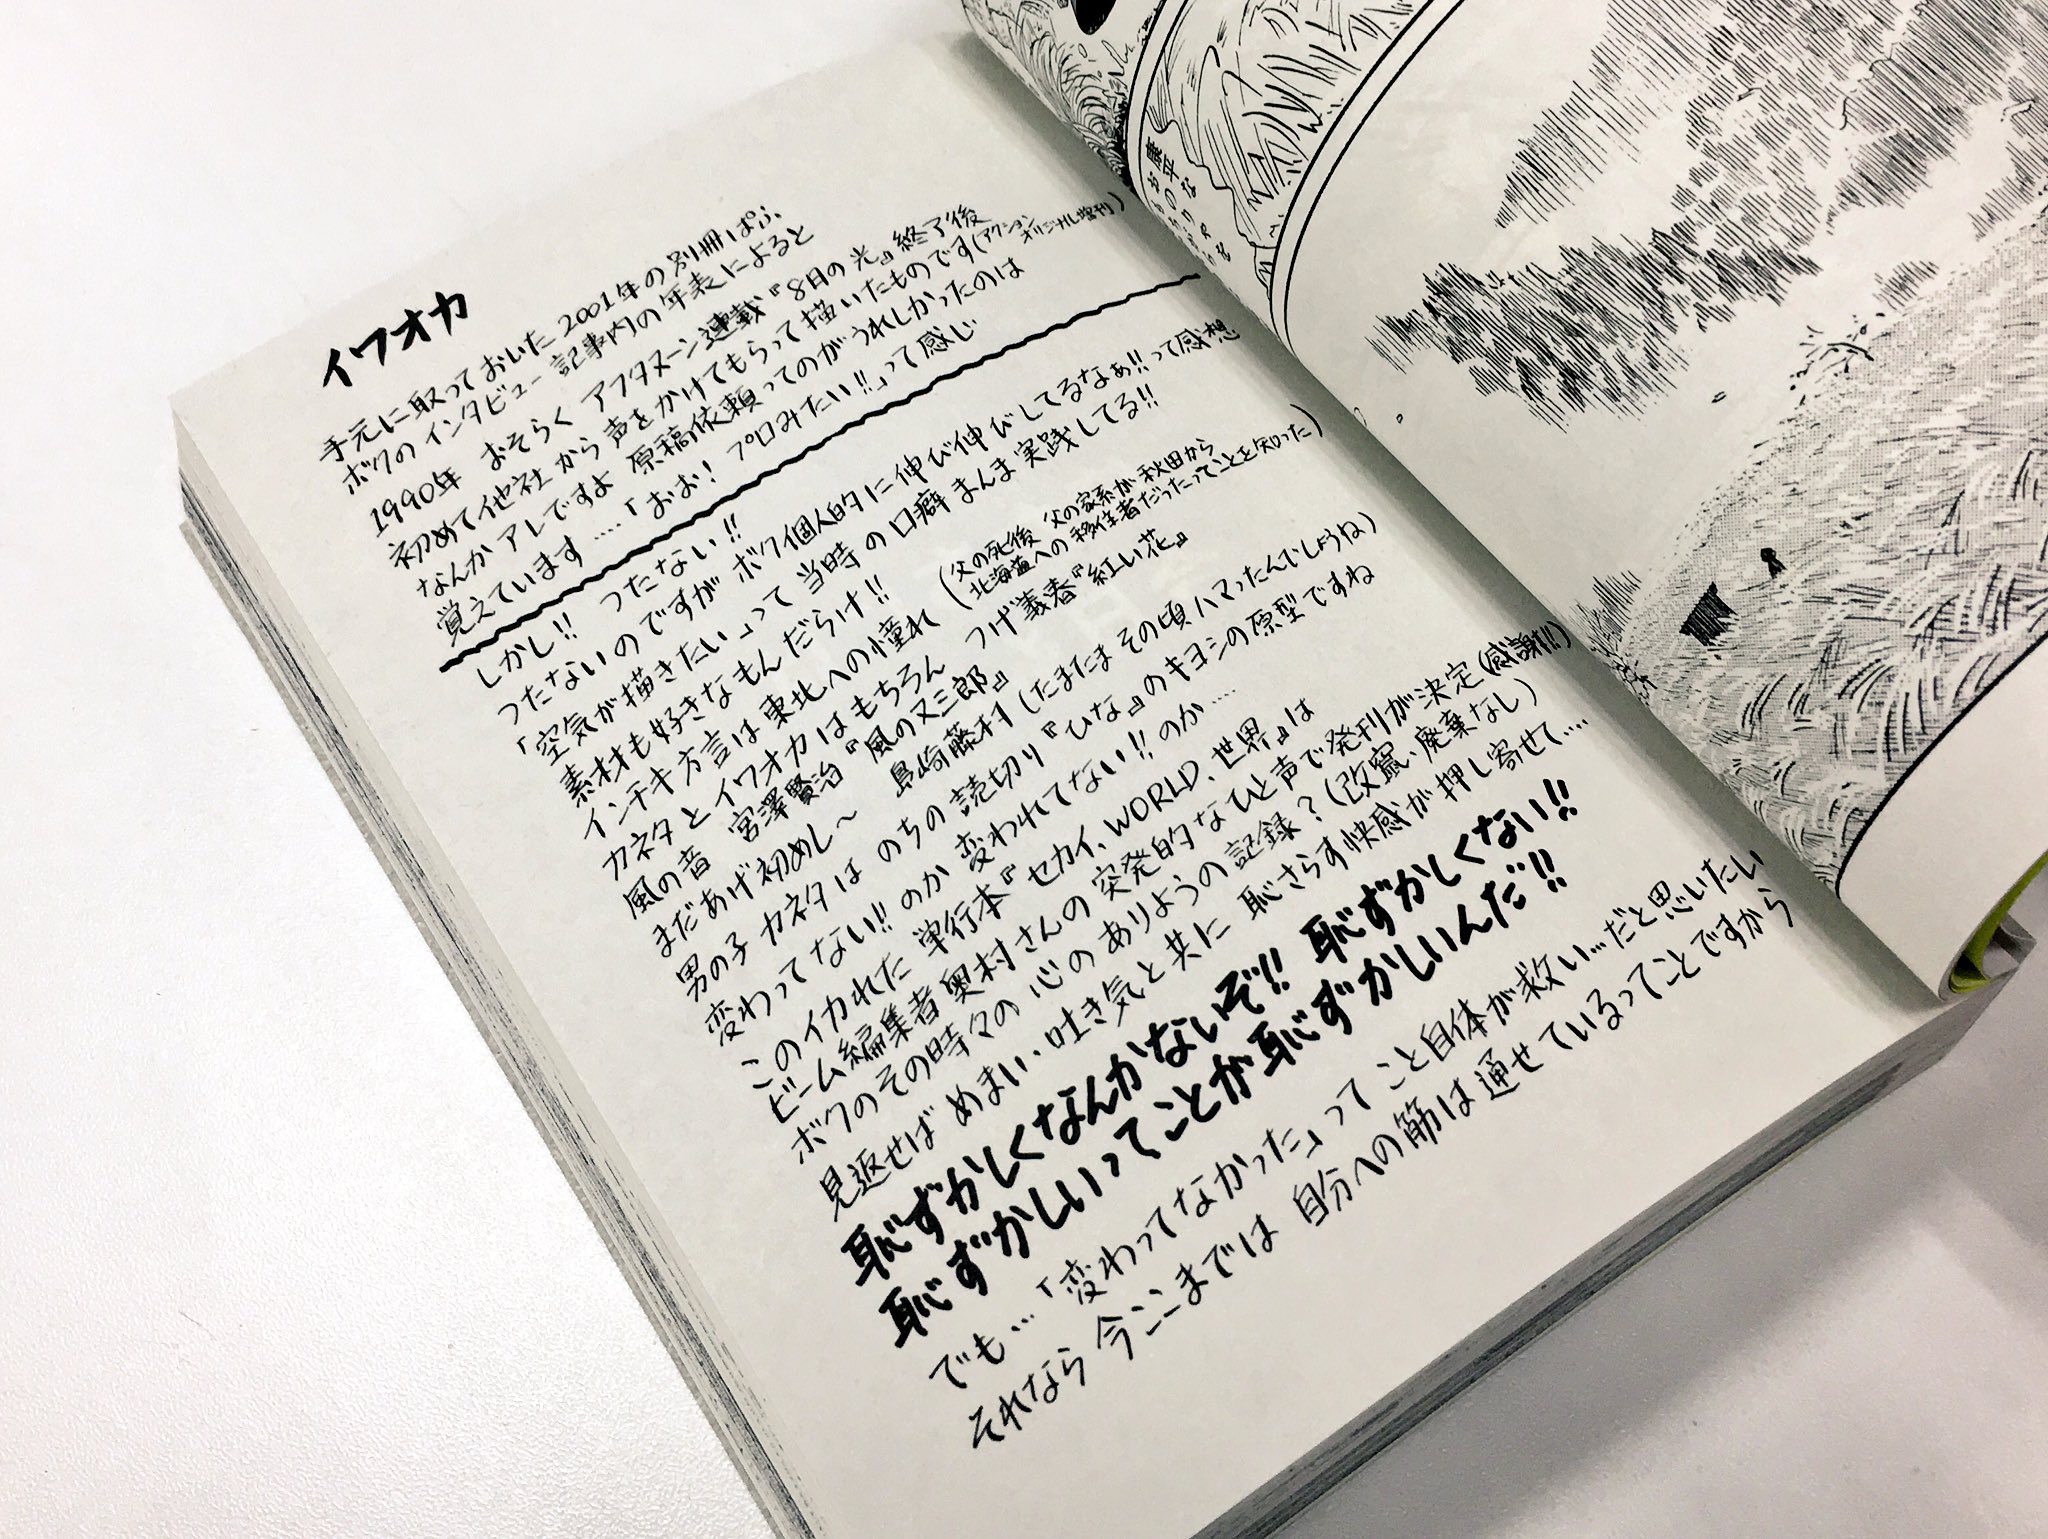 イワオカ
手元に取っておいた2001年の別冊ぱふ
ボクのインタビュー記事内の年表によると
1990年 おそらく アフタヌーン連載『8月の光』終了後
初めて他社から声をかけてもらって描いたものです(アクションオリジナル増刊)
なんかアレですよ 原稿依頼ってのがうれしかったのは
覚えています…「おお! プロみたい!!」って感じ
しかし!! つたない!!
つたないのですが ボク個人的に伸び伸びしてるなぁ!!って感想
「空気が描きたい」って当時の口癖まんま実践してる!!
素材も好きなもんだらけ!!
インチキ方言は東北への憧れ(父の死後 父の家系が秋田から北海道への移住者だったってことを知った)
カネタとイワオカはもちろん つげ義春『紅い花』
風の音 宮澤賢治『風の又三郎』
まだあげ初めし〜 島崎藤村(たまたまその頃ハマったんでしょうね)
男の子カネタは のちの読切り『ひな』のキヨシの原型ですね
変わってない!!のか 変われてない!!のか…
このイカれた 単行本『セカイ、WORLD、世界』は
ビーム編集者奥村さんの突発的なひと声で発刊が決定(感謝!!)
ボクのその時々の 心のありようの記録?(改竄、廃棄なし)
見返せば めまい、吐き気と共に 恥さらす快感が押し寄せて…
恥ずかしくなんかないぞ!! 恥ずかしくない!!
恥ずかしいってことが恥ずかしいんだ!!
でも…「変わってなかった」って こと自体が救い…だと思いたい
それなら 今ここまでは 自分への筋は通せているってことですから
康平